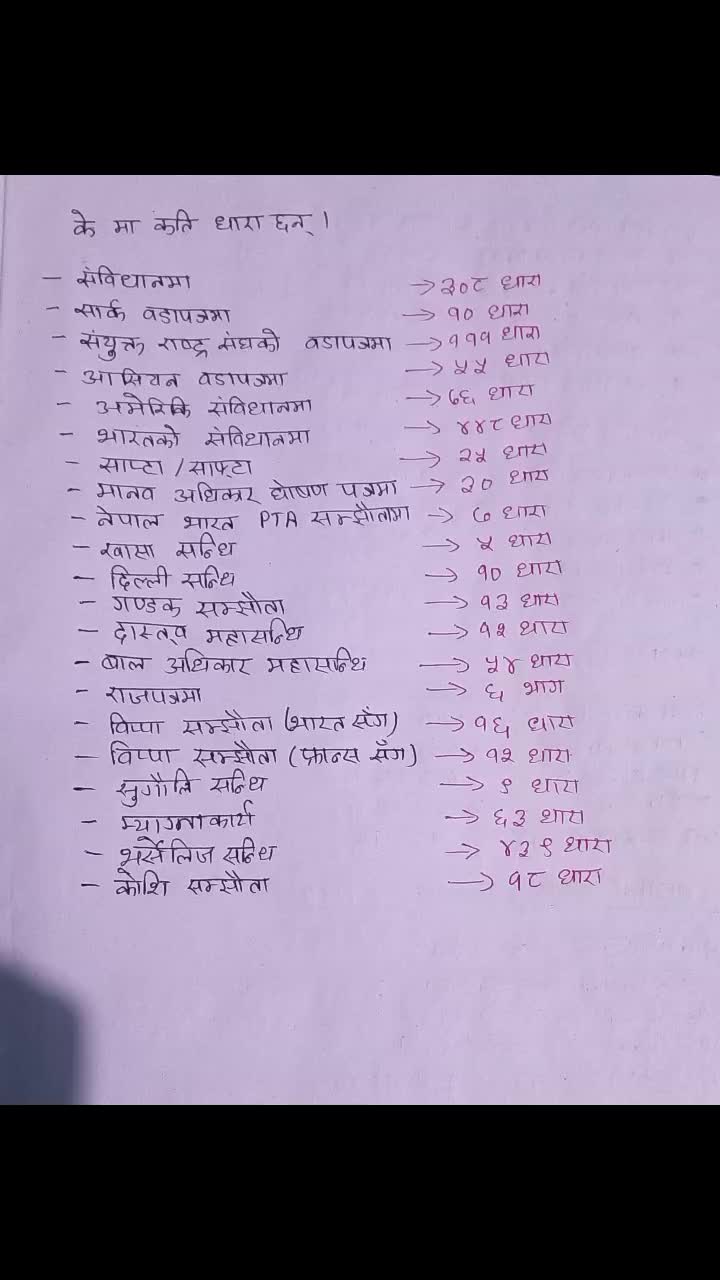 के मा कति धारा छन् ।
- संविधानमा → ३०८ धारा
- सार्क वडापत्रमा → १० धारा
- संयुक्त राष्ट्र संघको वडापत्रमा → १११ धारा
- आसियन वडापत्रमा → ५५ धारा
- अमेरिकि संविधानमा → ७६ धारा
- भारतको संविधानमा → ४४८ धारा
- साप्टा / साफ्टा → २५ धारा
- मानव अधिकार घोषण पत्रमा → ३० धारा
- नेपाल भारत PTA सम्झौतामा → ७ धारा
- खासा सन्धि → ५ धारा
- दिल्ली सन्धि → १० धारा
- गण्डक सम्झौता → १३ धारा
- दास्त्व महासन्धि → १२ धारा
- बाल अधिकार महासन्धि → ५४ धारा
- राजपत्रमा → ६ भाग
- विप्पा सम्झौता (भारत सँग) → १६ धारा
- विप्पा सम्झौता (फ्रान्स सँग) → १२ धारा
- सुगौलि सन्धि → ९ धारा
- म्याग्नाकार्टा → ६३ धारा
- भर्सेलिज सन्धि → ४३९ धारा
- कोशि सम्झौता → १८ धारा